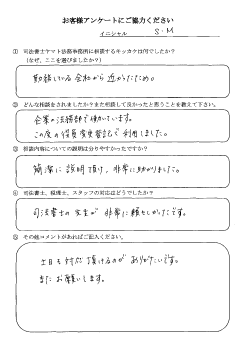 お客様アンケートにご協力ください
イニシャル S.M
① 司法書士ヤマト法務事務所に相談するキッカケは何でしたか？
（なぜ、ここを選びましたか？）
勤務している会社から近かったため。
② どんな相談をされましたか？また相談して良かったと思うことを教えて下さい。
企業の法務部で働いています。
この度の役員変更登記で利用しました。
③ 相談内容についての説明は分りやすかったですか？
簡潔に説明頂け、非常に助かりました。
④ 司法書士、税理士、スタッフの対応はどうでしたか？
司法書士の先生が非常に頼もしかったです。
⑤ その他コメントがあればご記入ください。
土日も対応頂けるのがありがたいです。
またお願いします。